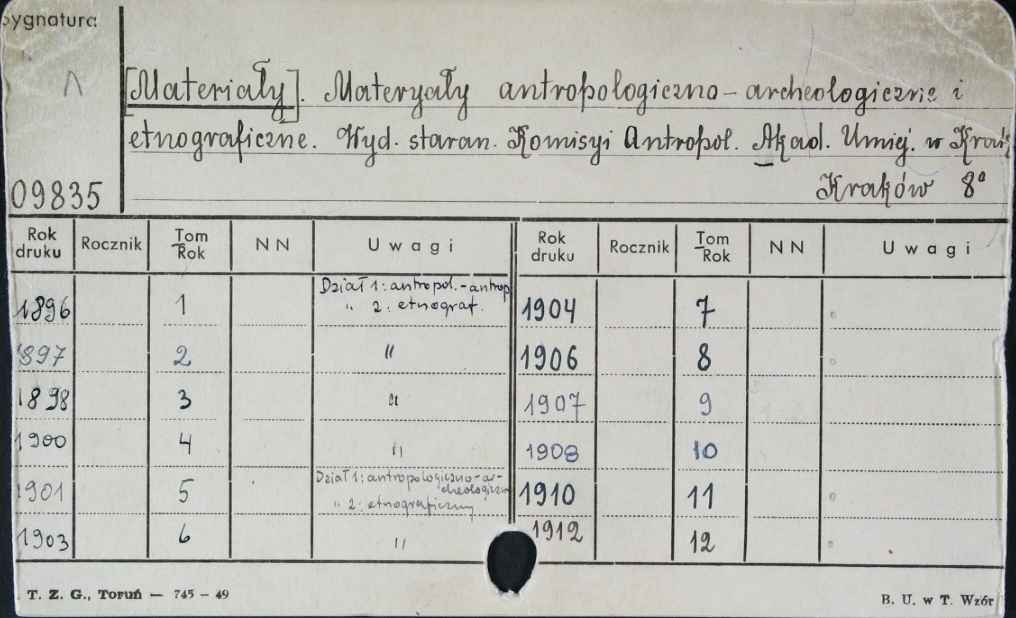 Sygnatura
[Materiały]. Materyały antropologiczno-archeologiczne i
etnograficzne. Wyd. staran. Komisyi Antropol. Akad. Umiej. w Krak
09835
Kraków 8°
Rok druku Rocznik Tom/Rok NN Uwagi Rok druku Rocznik Tom/Rok NN Uwagi
1896 1 Dział 1: antropol.-antrop 1904 7
" 2: etnograf.
1897 2 " 1906 8
1898 3 " 1907 9
1900 4 " 1908 10
1901 5 Dział 1: antropologiczno-ar- 1910 11
cheologiczn
" 2: etnograficzny
1903 6 " 1912 12
T. Z. G., Toruń — 745 - 49
B. U. w T. Wzór